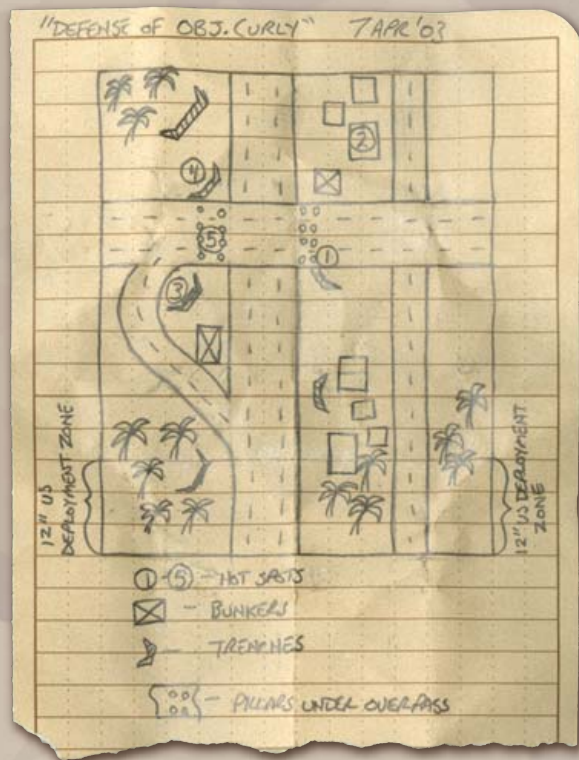 "DEFENSE OF OBJ. CURLY" 7 APR '03
2
4
5
1
3
12" US
DEPLOYMENT ZONE
12" US DEPLOYMENT
ZONE
1-5 - HOT SPOTS
- BUNKERS
- TRENCHES
- PILLARS UNDER OVERPASS